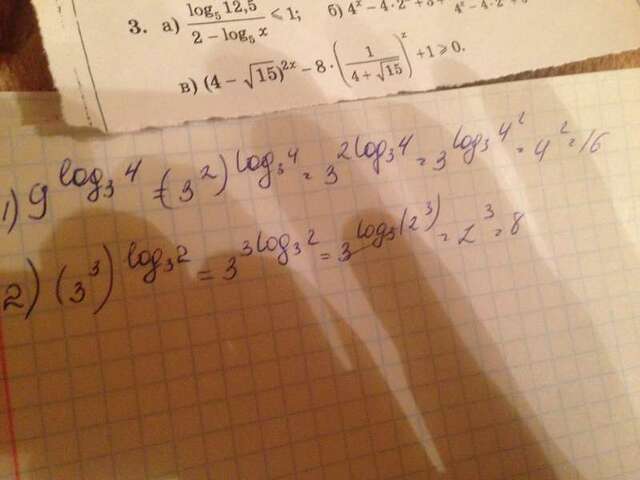 3. а) log₅ 12,5 / (2 − log₅ x) ⩽ 1; б) 4ˣ − 4 · 2
в) (4 − √15)²ˣ − 8 · (1 / (4 + √15))ˣ + 1 ⩾ 0.
1) 9^(log₃ 4) = (3²)^(log₃ 4) = 3^(2 log₃ 4) = 3^(log₃ 4²) = 4² = 16
2) (3³)^(log₃ 2) = 3^(3 log₃ 2) = 3^(log₃ (2³)) = 2³ = 8